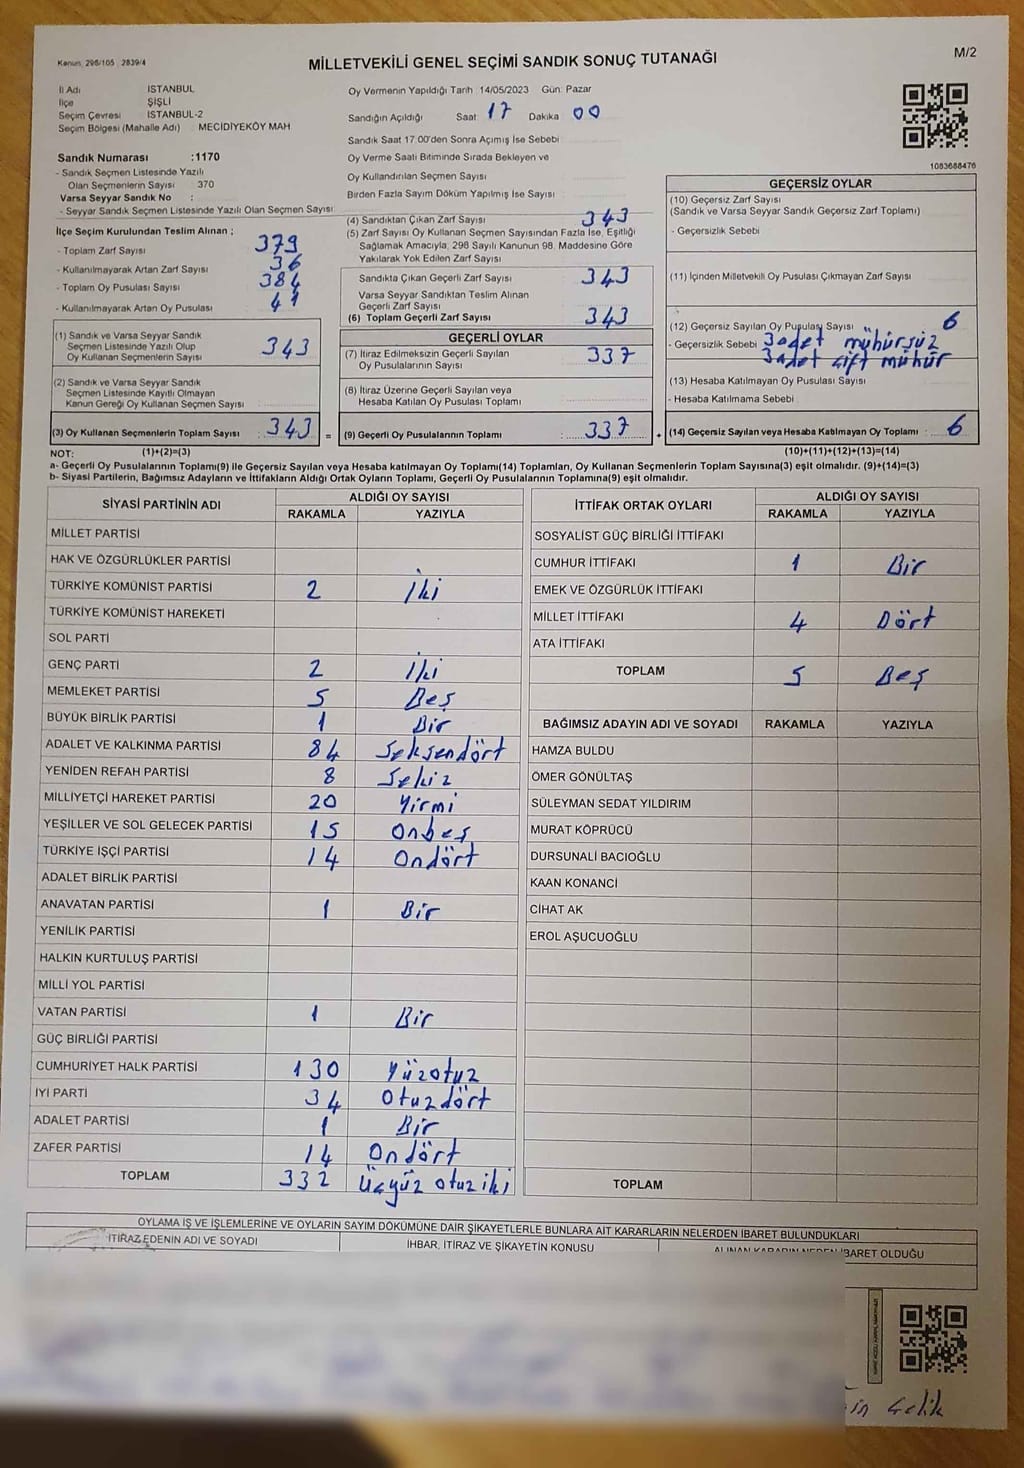 Kanun 298/105 2839/4
MİLLETVEKİLİ GENEL SEÇİMİ SANDIK SONUÇ TUTANAĞI
M/2
İl Adı İSTANBUL
İlçe ŞİŞLİ
Seçim Çevresi İSTANBUL-2
Seçim Bölgesi (Mahalle Adı) MECİDİYEKÖY MAH
Oy Vermenin Yapıldığı Tarih 14/05/2023 Gün: Pazar
Sandığın Açıldığı Saat 17 Dakika 00
Sandık Saat 17.00'den Sonra Açımış İse Sebebi
Oy Verme Saati Bitiminde Sırada Bekleyen ve
Oy Kullandırılan Seçmen Sayısı
Birden Fazla Sayım Döküm Yapılmış İse Sayısı
1083688476
Sandık Numarası :1170
- Sandık Seçmen Listesinde Yazılı
Olan Seçmenlerin Sayısı 370
Varsa Seyyar Sandık No :
- Seyyar Sandık Seçmen Listesinde Yazılı Olan Seçmen Sayısı
İlçe Seçim Kurulundan Teslim Alınan ;
- Toplam Zarf Sayısı 379
- Kullanılmayarak Artan Zarf Sayısı 36
- Toplam Oy Pusulası Sayısı 384
- Kullanılmayarak Artan Oy Pusulası 41
(1) Sandık ve Varsa Seyyar Sandık
Seçmen Listesinde Yazılı Olup
Oy Kullanan Seçmenlerin Sayısı 343
(2) Sandık ve Varsa Seyyar Sandık
Seçmen Listesinde Kayıtlı Olmayan
Kanun Gereği Oy Kullanan Seçmen Sayısı
(3) Oy Kullanan Seçmenlerin Toplam Sayısı : 343 =
(4) Sandıktan Çıkan Zarf Sayısı 343
(5) Zarf Sayısı Oy Kullanan Seçmen Sayısından Fazla İse, Eşitliği
Sağlamak Amacıyla, 298 Sayılı Kanunun 98. Maddesine Göre
Yakılarak Yok Edilen Zarf Sayısı
Sandıkta Çıkan Geçerli Zarf Sayısı 343
Varsa Seyyar Sandıktan Teslim Alınan
Geçerli Zarf Sayısı
(6) Toplam Geçerli Zarf Sayısı 343
GEÇERLİ OYLAR
(7) İtiraz Edilmeksizin Geçerli Sayılan
Oy Pusulalarının Sayısı 337
(8) İtiraz Üzerine Geçerli Sayılan veya
Hesaba Katılan Oy Pusulası Toplamı
(9) Geçerli Oy Pusulalarının Toplamı : 337 +
GEÇERSİZ OYLAR
(10) Geçersiz Zarf Sayısı
(Sandık ve Varsa Seyyar Sandık Geçersiz Zarf Toplamı)
- Geçersizlik Sebebi
(11) İçinden Milletvekili Oy Pusulası Çıkmayan Zarf Sayısı
(12) Geçersiz Sayılan Oy Pusulası Sayısı 6
- Geçersizlik Sebebi 3 adet mühürsüz
3 adet çift mühür
(13) Hesaba Katılmayan Oy Pusulası Sayısı
- Hesaba Katılmama Sebebi
(14) Geçersiz Sayılan veya Hesaba Katılmayan Oy Toplamı : 6
NOT: (1)+(2)=(3) (10)+(11)+(12)+(13)=(14)
a- Geçerli Oy Pusulalarının Toplamı(9) ile Geçersiz Sayılan veya Hesaba katılmayan Oy Toplamı(14) Toplamları, Oy Kullanan Seçmenlerin Toplam Sayısına(3) eşit olmalıdır. (9)+(14)=(3)
b- Siyasi Partilerin, Bağımsız Adayların ve İttifakların Aldığı Ortak Oyların Toplamı, Geçerli Oy Pusulalarının Toplamına(9) eşit olmalıdır.
SİYASİ PARTİNİN ADI ALDIĞI OY SAYISI
RAKAMLA YAZIYLA
MİLLET PARTİSİ
HAK VE ÖZGÜRLÜKLER PARTİSİ
TÜRKİYE KOMÜNİST PARTİSİ 2 İki
TÜRKİYE KOMÜNİST HAREKETİ
SOL PARTİ
GENÇ PARTİ 2 İki
MEMLEKET PARTİSİ 5 Beş
BÜYÜK BİRLİK PARTİSİ 1 Bir
ADALET VE KALKINMA PARTİSİ 84 Seksendört
YENİDEN REFAH PARTİSİ 8 Sekiz
MİLLİYETÇİ HAREKET PARTİSİ 20 Yirmi
YEŞİLLER VE SOL GELECEK PARTİSİ 15 Onbeş
TÜRKİYE İŞÇİ PARTİSİ 14 Ondört
ADALET BİRLİK PARTİSİ
ANAVATAN PARTİSİ 1 Bir
YENİLİK PARTİSİ
HALKIN KURTULUŞ PARTİSİ
MİLLİ YOL PARTİSİ
VATAN PARTİSİ 1 Bir
GÜÇ BİRLİĞİ PARTİSİ
CUMHURİYET HALK PARTİSİ 130 Yüzotuz
İYİ PARTİ 34 Otuzdört
ADALET PARTİSİ 1 Bir
ZAFER PARTİSİ 14 Ondört
TOPLAM 332 Üçyüz otuziki
İTTİFAK ORTAK OYLARI ALDIĞI OY SAYISI
RAKAMLA YAZIYLA
SOSYALİST GÜÇ BİRLİĞİ İTTİFAKI
CUMHUR İTTİFAKI 1 Bir
EMEK VE ÖZGÜRLÜK İTTİFAKI
MİLLET İTTİFAKI 4 Dört
ATA İTTİFAKI
TOPLAM 5 Beş
BAĞIMSIZ ADAYIN ADI VE SOYADI RAKAMLA YAZIYLA
HAMZA BULDU
ÖMER GÖNÜLTAŞ
SÜLEYMAN SEDAT YILDIRIM
MURAT KÖPRÜCÜ
DURSUNALİ BACIOĞLU
KAAN KONANCİ
CİHAT AK
EROL AŞUCUOĞLU
TOPLAM
OYLAMA İŞ VE İŞLEMLERİNE VE OYLARIN SAYIM DÖKÜMÜNE DAİR ŞİKAYETLERLE BUNLARA AİT KARARLARIN NELERDEN İBARET BULUNDUKLARI
İTİRAZ EDENİN ADI VE SOYADI İHBAR, İTİRAZ VE ŞİKAYETİN KONUSU ALINAN KARARIN NEDEN İBARET OLDUĞU
in Çelik